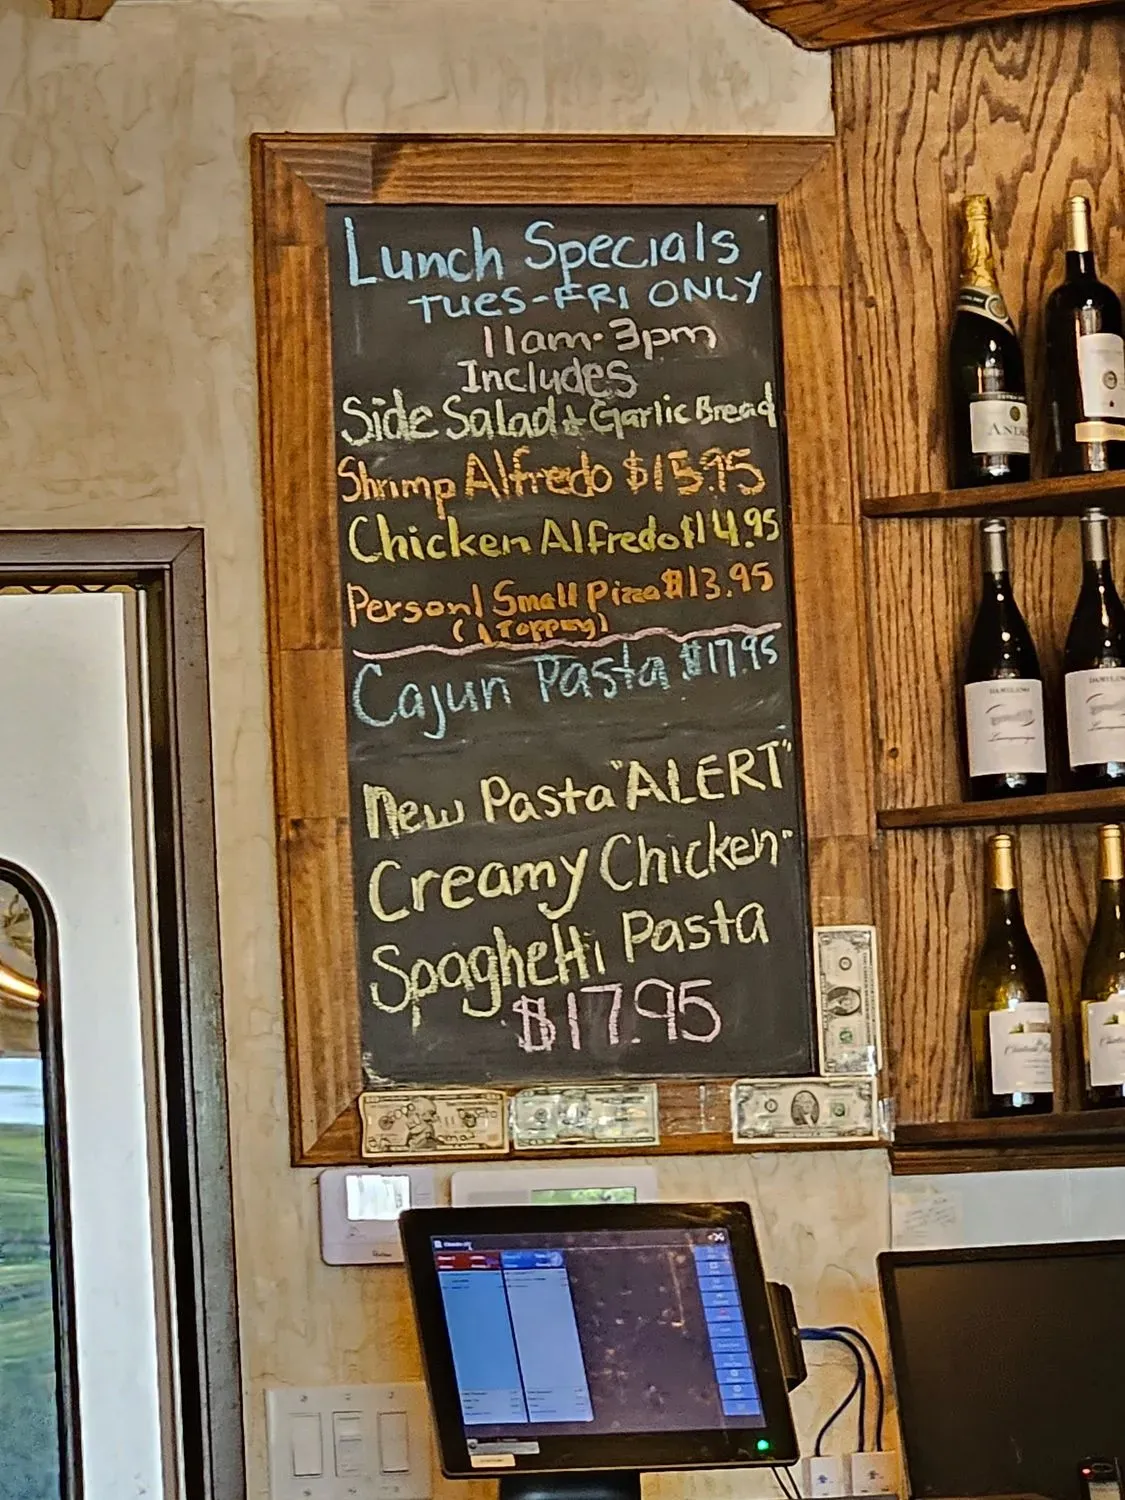 Lunch Specials
TUES-FRI ONLY
11am-3pm
Includes
Side Salad & Garlic Bread
Shrimp Alfredo $15.95
Chicken Alfredo $14.95
Personl Small Pizza $13.95
(1 Topping)
Cajun Pasta $17.95
New Pasta "ALERT"
Creamy Chicken"
Spaghetti Pasta
$17.95